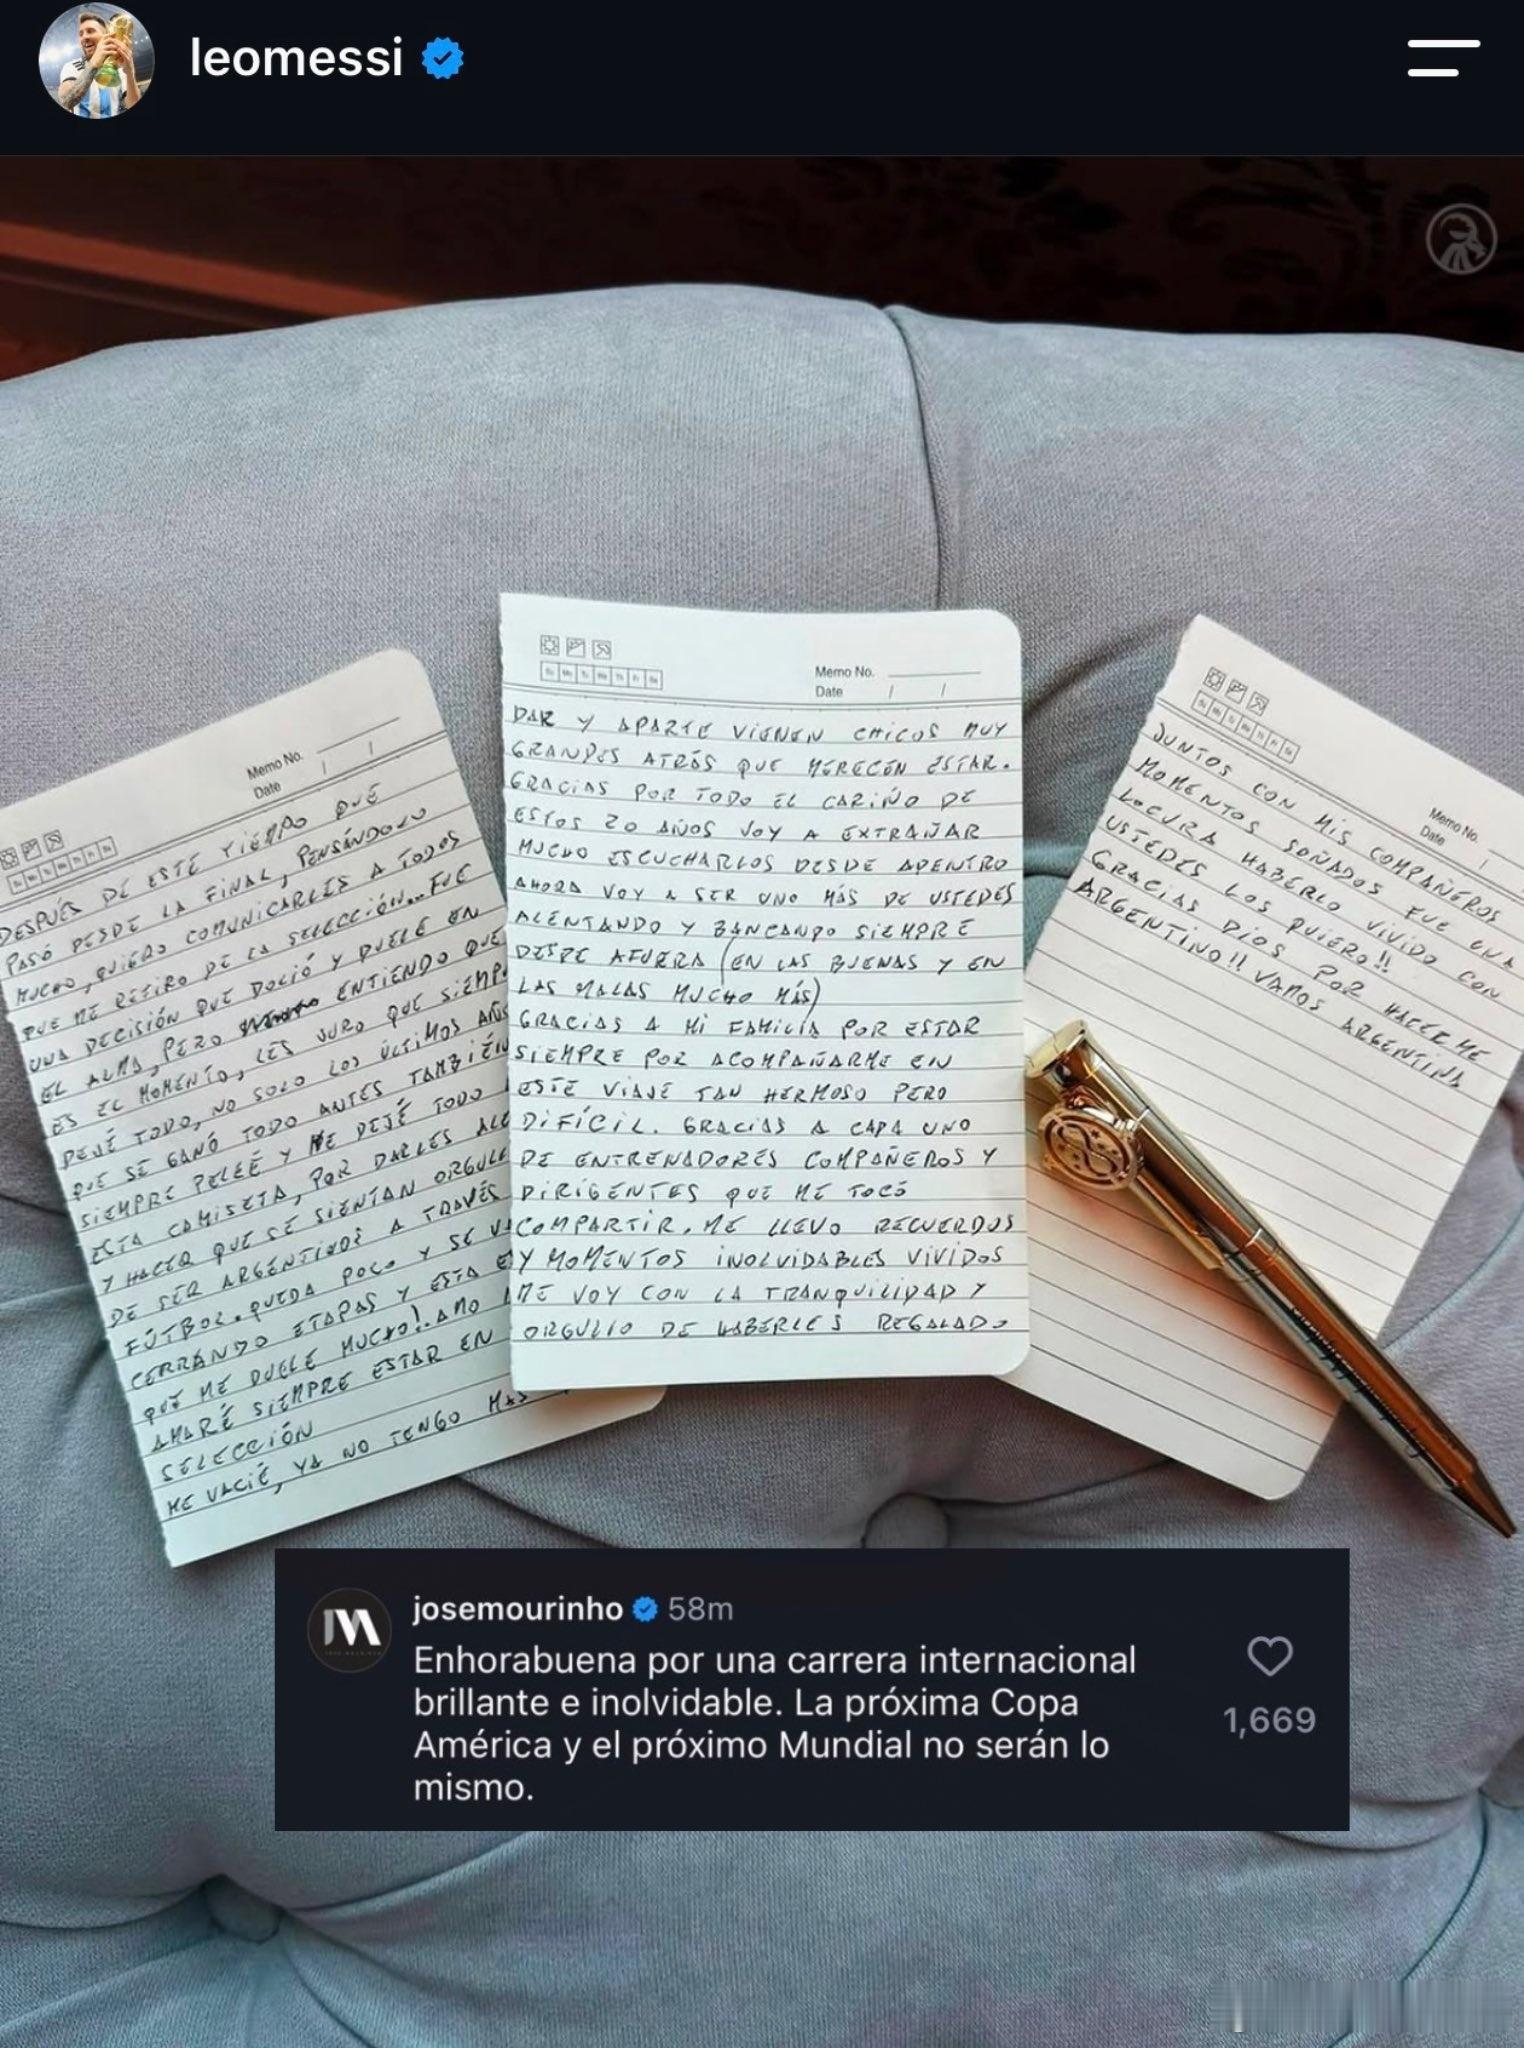 leomessi
Memo No.
Date / /
DESPUÉS DE ESTE TIEMPO QUE
PASÓ DESDE LA FINAL, PENSÁNDOLO
MUCHO, QUIERO COMUNICARLES A TODOS
QUE ME RETIRO DE LA SELECCIÓN... FUE
UNA DECISIÓN QUE DOLIÓ Y DUELE EN
EL ALMA, PERO ENTIENDO QUE
ES EL MOMENTO, LES JURO QUE SIEMP
DEJÉ TODO, NO SOLO LOS ÚLTIMOS AÑOS
QUE SE GANÓ TODO ANTES TAMBIÉN
SIEMPRE PELEÉ Y ME DEJÉ TODO
ESTA CAMISETA, POR DARLES ALE
Y HACER QUE SE SIENTAN ORGULL
DE SER ARGENTINOS A TRAVÉS
FÚTBOL. QUEDA POCO Y SE VA
CERRANDO ETAPAS Y ESTA E
QUE ME DUELE MUCHO! AMO
AMARÉ SIEMPRE ESTAR EN
SELECCIÓN
ME VACIÉ, YA NO TENGO MAS
Su Mo Tu We Th Fr Sa
Memo No.
Date / /
DAR Y APARTE VIENEN CHICOS MUY
GRANDES ATRÁS QUE MERECEN ESTAR.
GRACIAS POR TODO EL CARIÑO DE
ESTOS 20 AÑOS VOY A EXTRAÑAR
MUCHO ESCUCHARLOS DESDE ADENTRO
AHORA VOY A SER UNO MÁS DE USTEDES
ALENTANDO Y BANCANDO SIEMPRE
DESDE AFUERA (EN LAS BUENAS Y EN
LAS MALAS MUCHO MÁS)
GRACIAS A MI FAMILIA POR ESTAR
SIEMPRE POR ACOMPAÑARME EN
ESTE VIAJE TAN HERMOSO PERO
DIFÍCIL. GRACIAS A CADA UNO
DE ENTRENADORES COMPAÑEROS Y
DIRIGENTES QUE ME TOCÓ
COMPARTIR. ME LLEVO RECUERDOS
Y MOMENTOS INOLVIDABLES VIVIDOS
ME VOY CON LA TRANQUILIDAD Y
ORGULLO DE HABERLES REGALADO
Su Mo Tu We Th Fr Sa
Memo No.
Date /
JUNTOS CON MIS COMPAÑEROS
MOMENTOS SOÑADOS FUE UNA
LOCURA HABERLO VIVIDO CON
USTEDES LOS QUIERO!!
GRACIAS DIOS POR HACERME
ARGENTINO!! VAMOS ARGENTINA
josemourinho 58m
Enhorabuena por una carrera internacional
brillante e inolvidable. La próxima Copa
América y el próximo Mundial no serán lo
mismo.
1,669